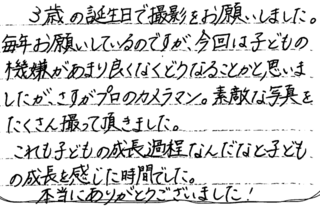 3歳の誕生日で撮影をお願いしました。
毎年お願いしているのですが、今回は子どもの
機嫌があまり良くなくどうなることかと思いま
したが、さすがプロのカメラマン。素敵な写真を
たくさん撮って頂きました。
これも子どもの成長過程なんだなと子ども
の成長を感じた時間でした。
本当にありがとうございました!